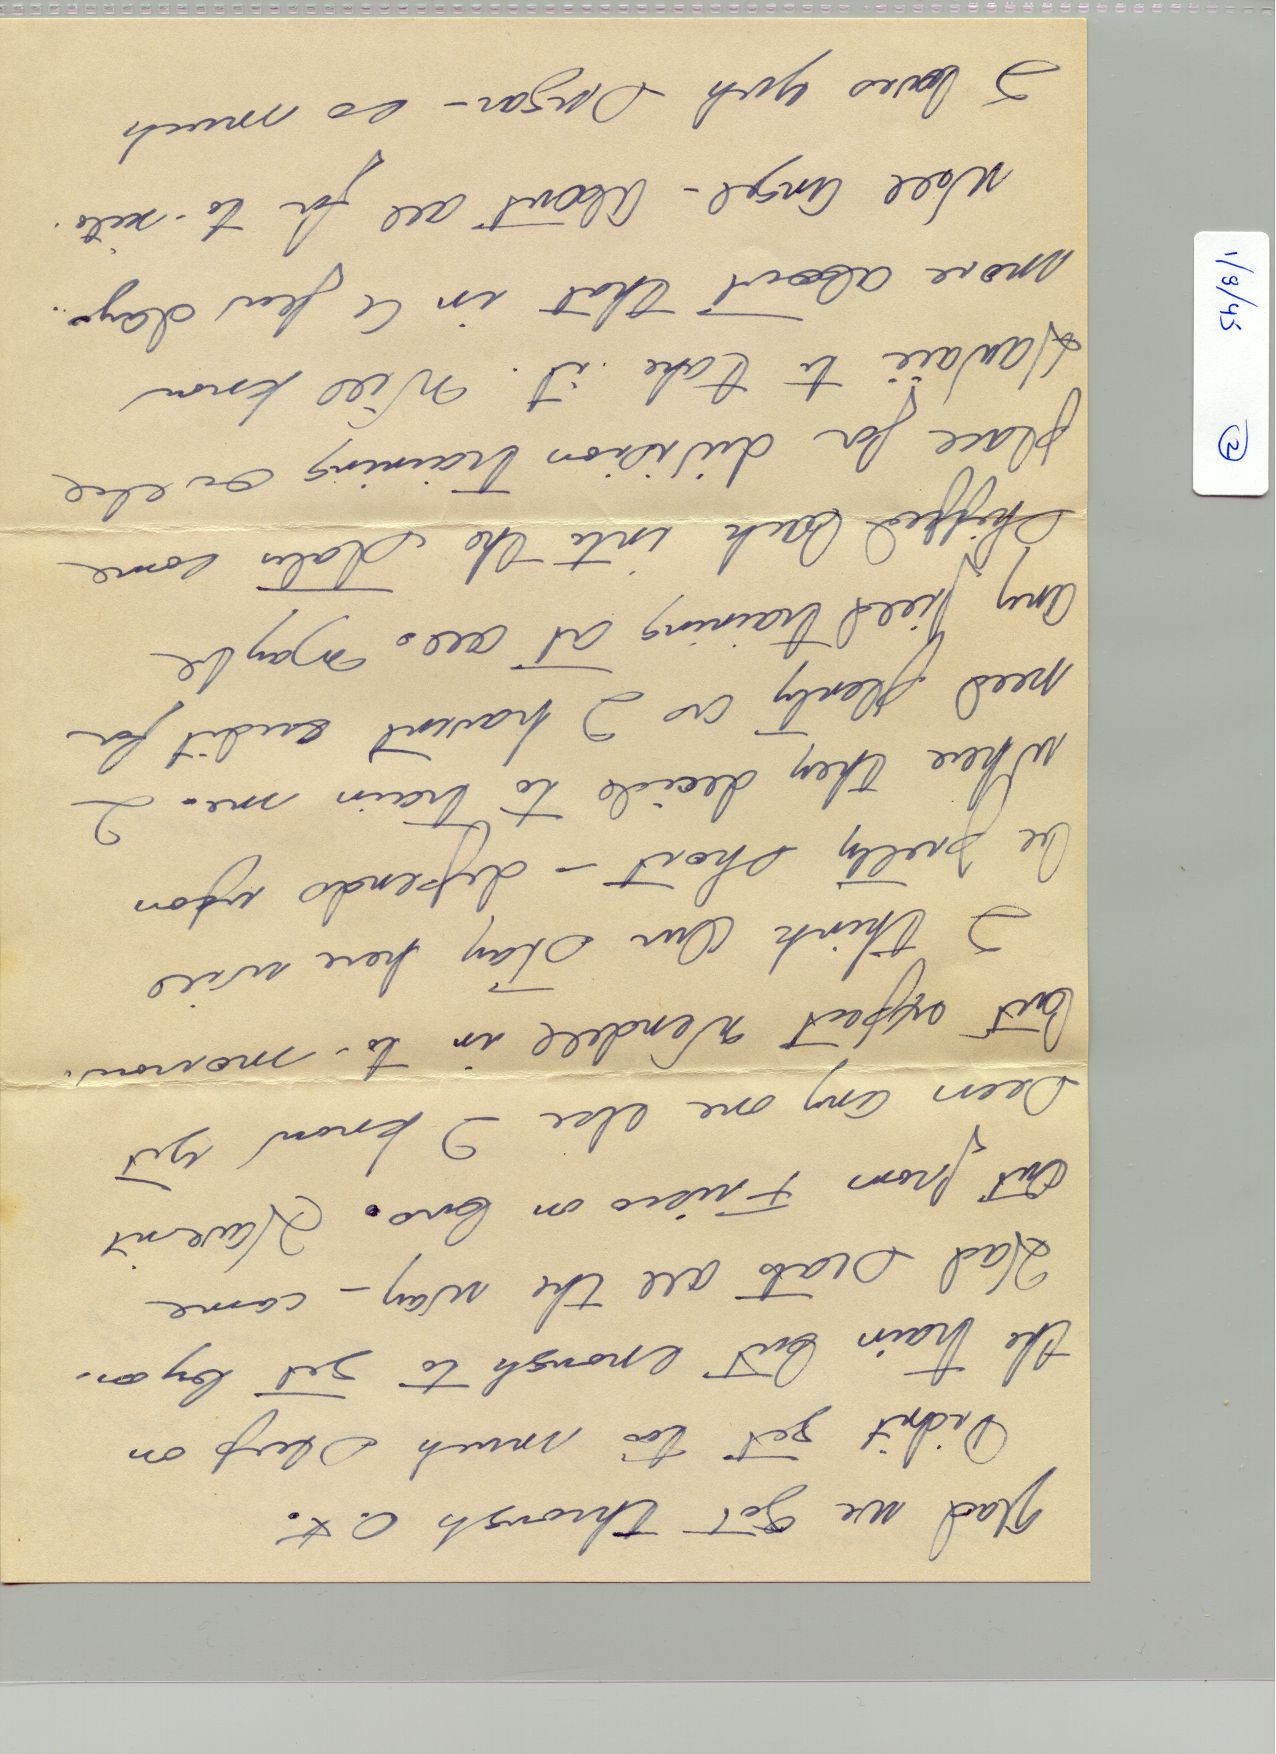 glad we got through O.K.
Didn't get too much sleep on
the train but enough to get by on.
Had seats all the way - came
out from Frisco on bus. Haven't
seen any one else I know yet
but expect Wendell in to-morrow.
I think our stay here will
be pretty short - depends upon
where they decide to train me. I
need plenty as I haven't had it for
any field training at all. Maybe
shipped back into the states some
place for division training or else
Hawaii to take it. Will know
more about that in a few days.
Well Angel - About all for to-nite.
I loves you Sugar - so much
1/9/45
2